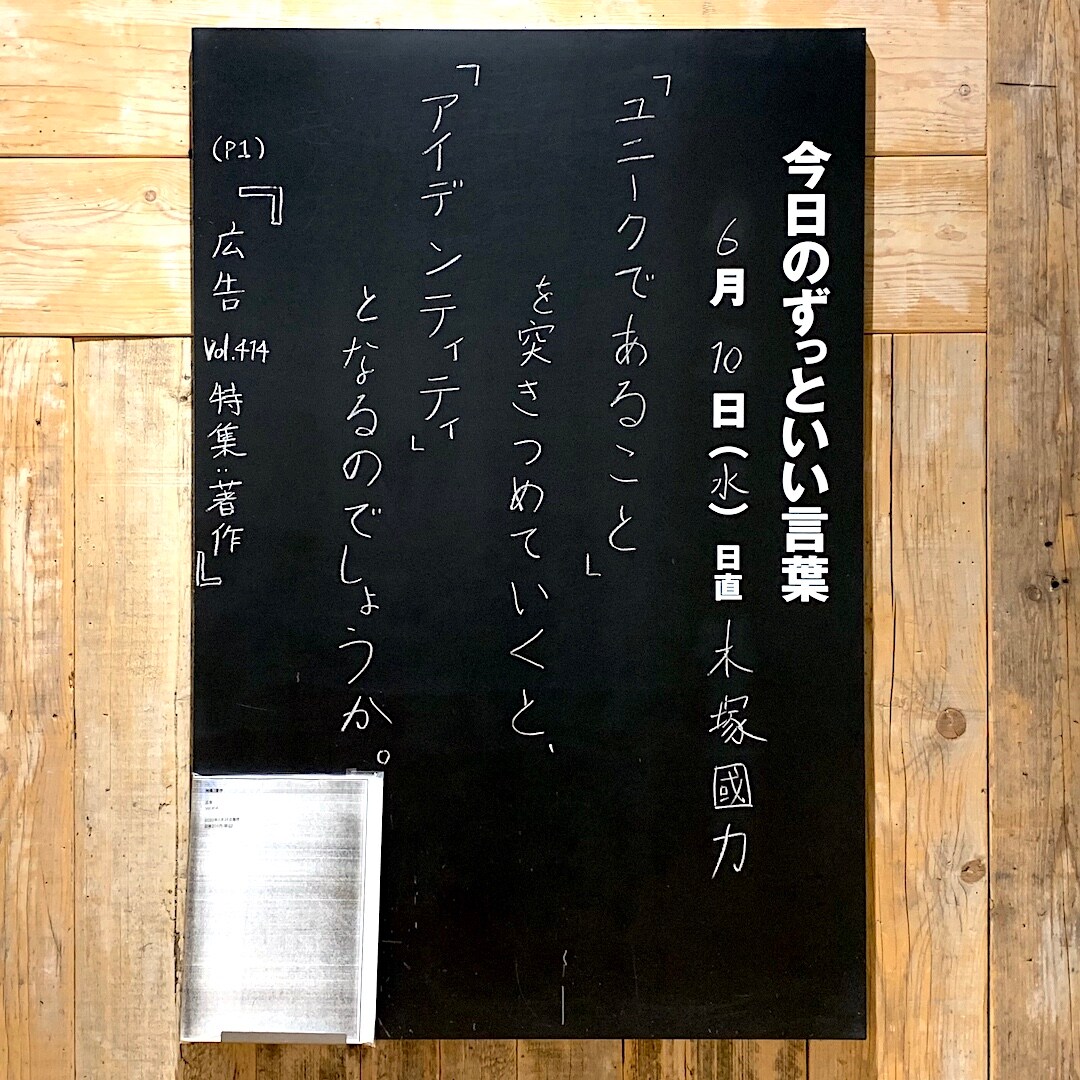 今日のずっといい言葉
6月10日(水) 日直 木塚國力
「ユニークであること」
を突きつめていくと、
「アイデンティティ」
となるのでしょうか。
(P1)『広告 Vol.414 特集:著作』